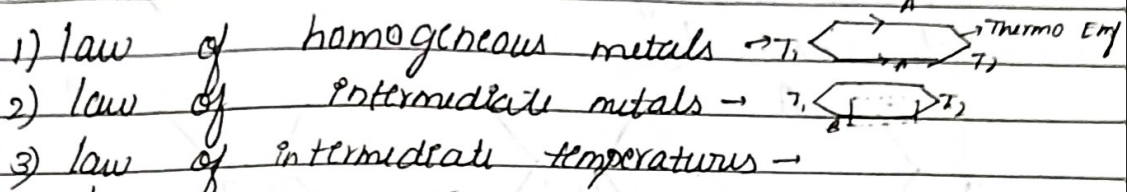 1) law of homogeneous metals → T₁ A A T₂ → Thermo Emf
2) law of intermediate metals → T₁ B T₂
3) law of intermediate temperatures →